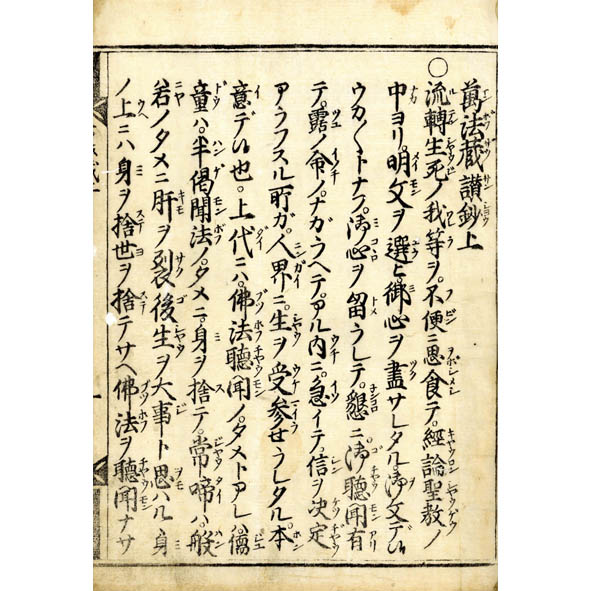 萬法蔵讃鈔上
○流轉生死ノ我等ヲ。不便ニ思食テ。經論聖教ノ
中ヨリ。明文ヲ選ヒ御心ヲ盡サレタル。御文デ
ウカ〱トナフ。御心ヲ留ラレテ。懇ニ御聴聞有
テ。露ノ命ノ。ナガラヘテ。アル内ニ。急イテ。信ヲ決定
アラフスル所ガ。人界ニ。生ヲ受参せラレタル。本
意デ也。上代ニハ。佛法聴聞ノ。タメトアレハ。儒
童ハ。半偈聞法ノ。タメニ。身ヲ捨テ。常啼ハ。般
若ノタメニ肝ヲ裂後生ヲ大事ト思ハル身
ノ上ニハ身ヲ捨世ヲ捨テサヘ佛法ヲ聴聞ナサ